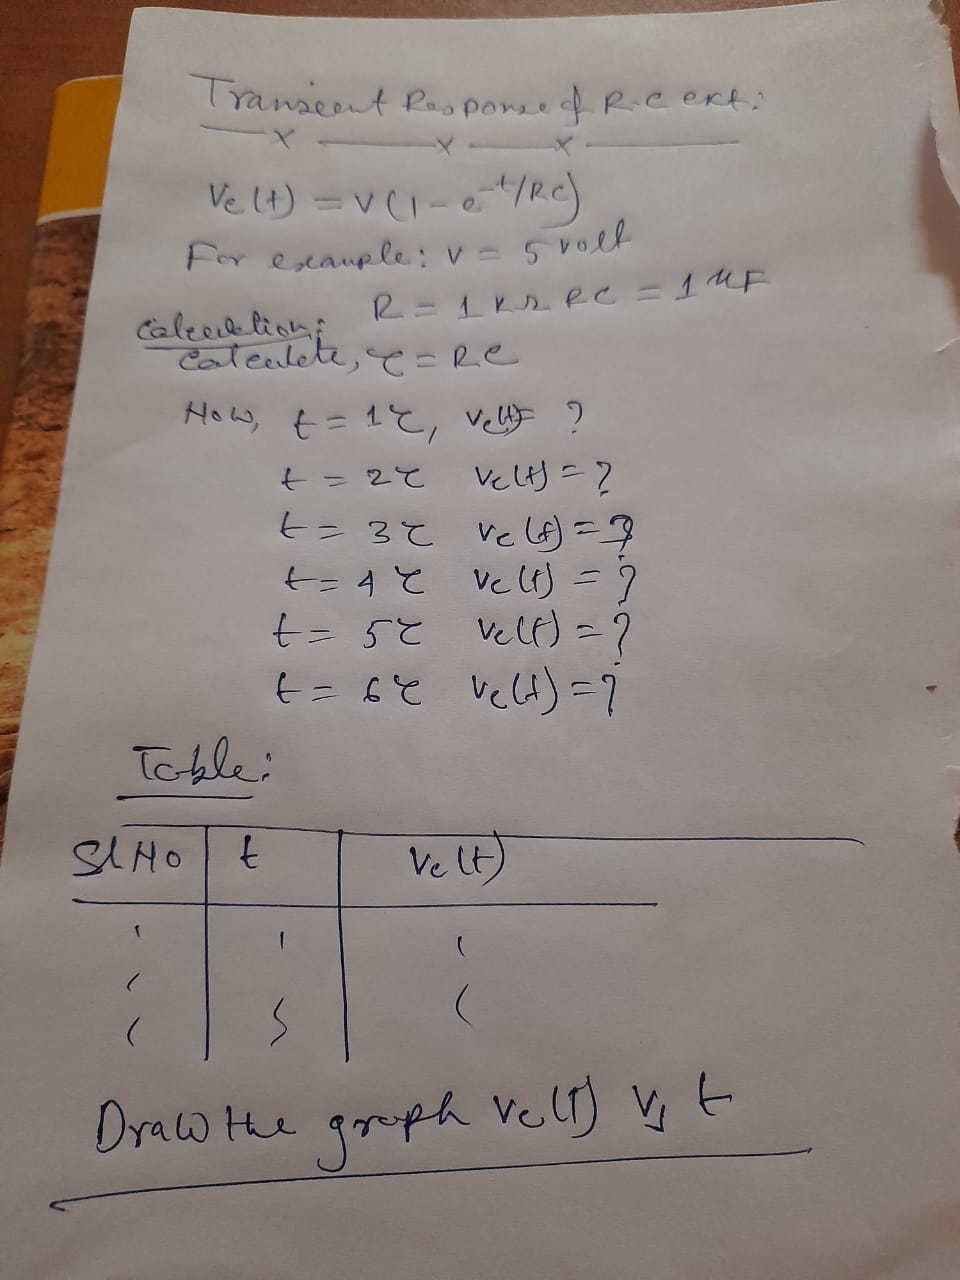 Transient Response of R-C ckt:
Vc(t) = V(1-e^-t/RC)
For example: V = 5 volt
R = 1 KΩ & C = 1 μF
Calculation:
Calculate, τ = RC
Now, t = 1τ, Vc(t) = ?
t = 2τ Vc(t) = ?
t = 3τ Vc(t) = ?
t = 4τ Vc(t) = ?
t = 5τ Vc(t) = ?
t = 6τ Vc(t) = ?
Table:
Sl No t Vc(t)
Draw the graph Vc(t) vs t